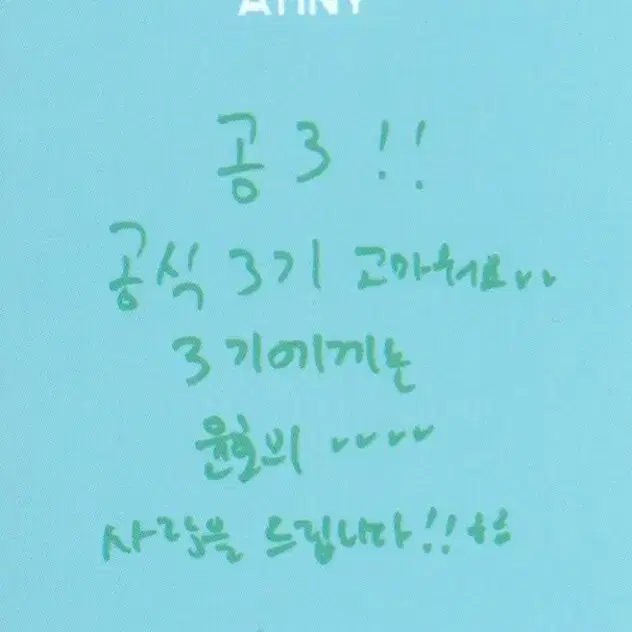 공3!!
공식 3기 고마워요..
3기에게는
윤호의 ....
사랑을 드립니다!!